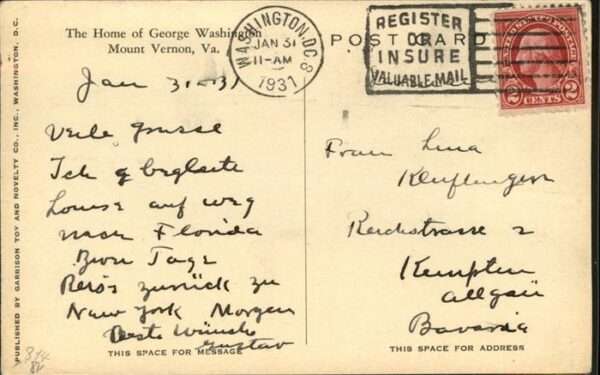 The Home of George Washington
Mount Vernon, Va.
WASHINGTON, D.C. 8
JAN 31
11-AM
1931
REGISTER
OR
INSURE
VALUABLE MAIL
POST CARD
2 CENTS 2
Jan 31-31
Veile grusse
Ich begleite
Louise auf weg
nach Florida
Zwei Tage
Reise zurück zu
New York Morgen
Beste Wünsche
Gustav
THIS SPACE FOR MESSAGE
Frau Lina
Reichstrasse 2
Kempten
Allgäu
Bavaria
THIS SPACE FOR ADDRESS
PUBLISHED BY GARRISON TOY AND NOVELTY CO., INC., WASHINGTON, D.C.